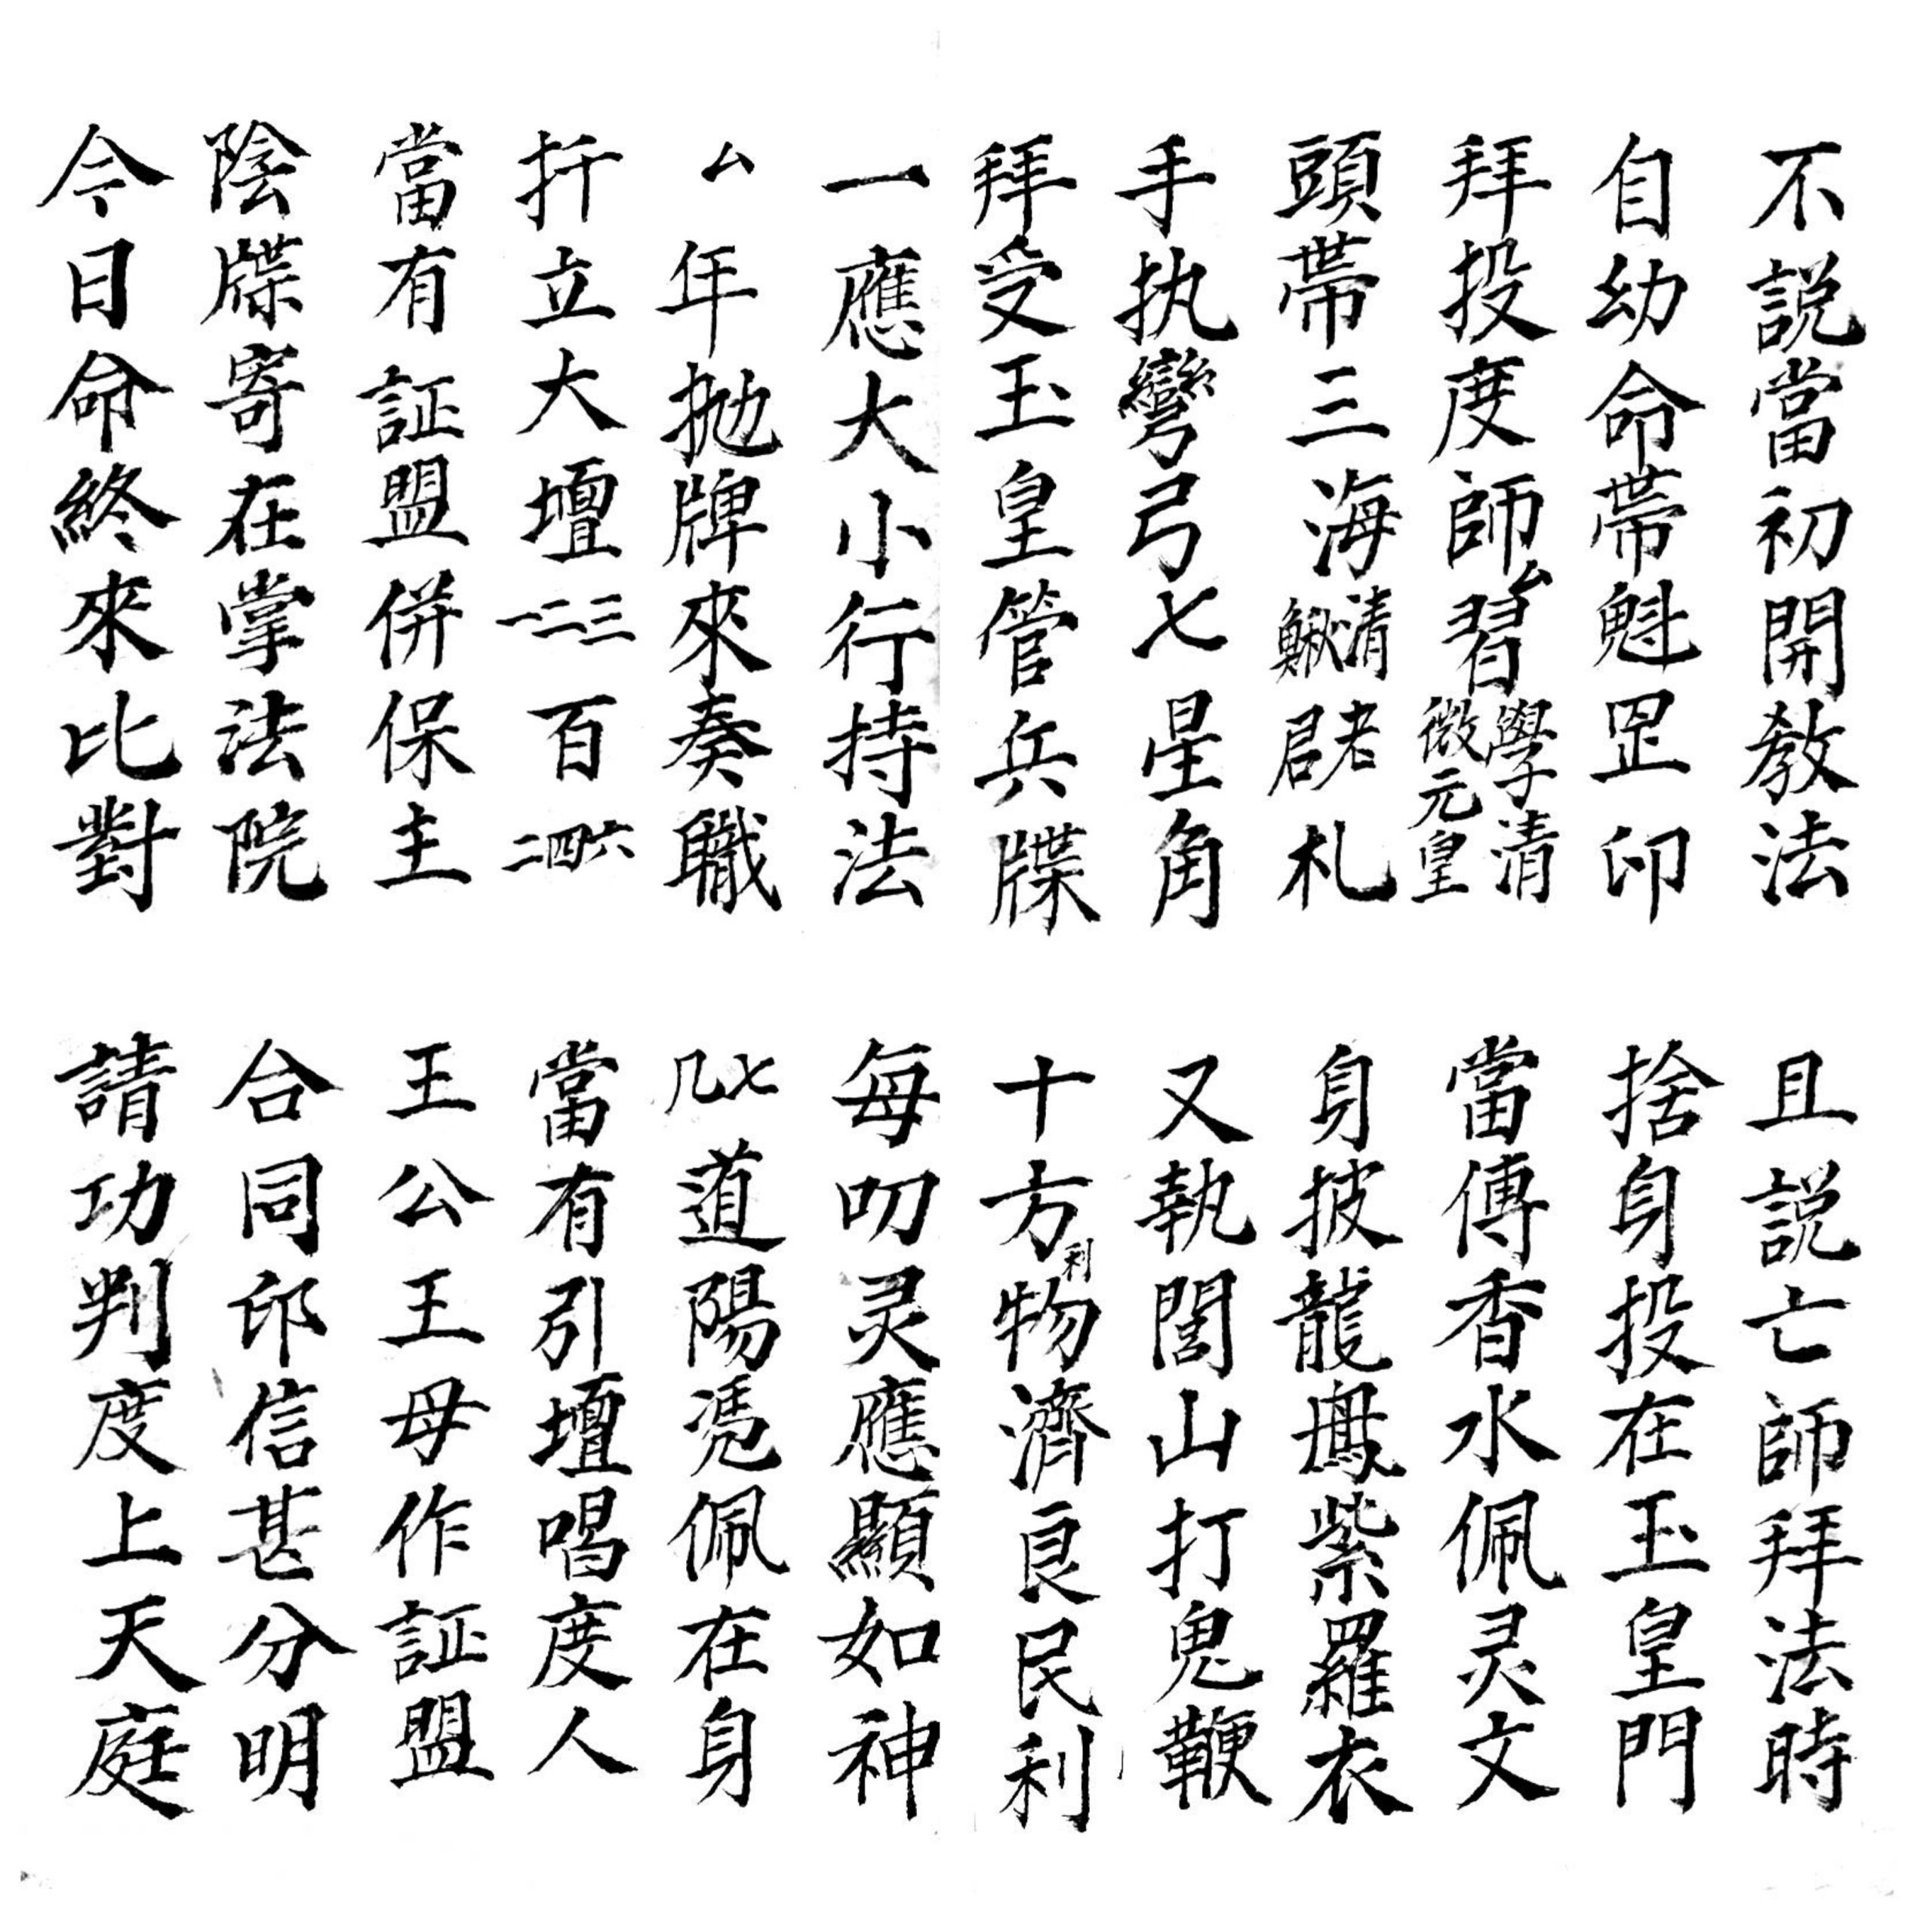 不説當初開教法
且説亡師拜法時
自幼命帶魁罡印
捨身投在玉皇門
拜投度師厶習學清微元皇清
當傳香水佩灵文
頭帶三海清鰍老君札
身披龍鳳紫羅衣
手执彎弓七星角
又執閭山打鬼鞭
拜受玉皇管兵牒
十方利物濟良民利
一應大小行持法
每叨灵應顯如神
厶年抛牌來奏職
几七道陽凴佩在身
扦立大壇一二三百二四六
當有引壇唱度人
當有証盟併保主
王公王母作証盟
陰牒寄在掌法院
合同卬信甚分明
今日命終來比對
請功判度上天庭